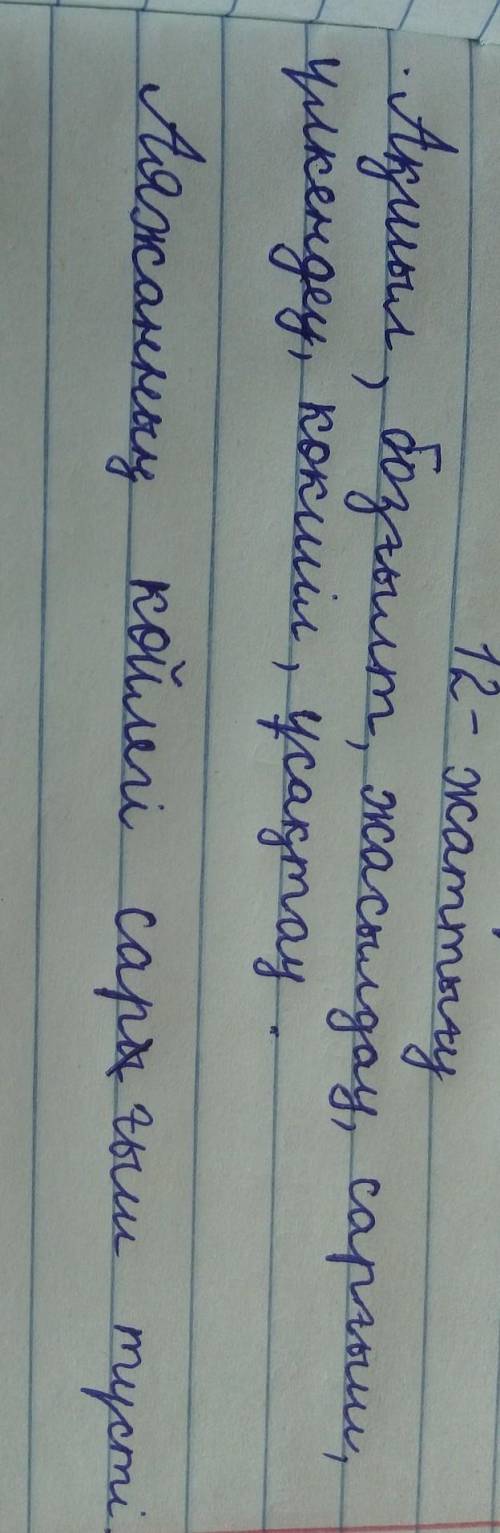 12- жаттығу
. Ақшыл, бозғылт, жасылдау, сарғыш,
үлкендеу, көкшіл, ұсақтау.
Аяжанның көйлегі сарғыш түсті.